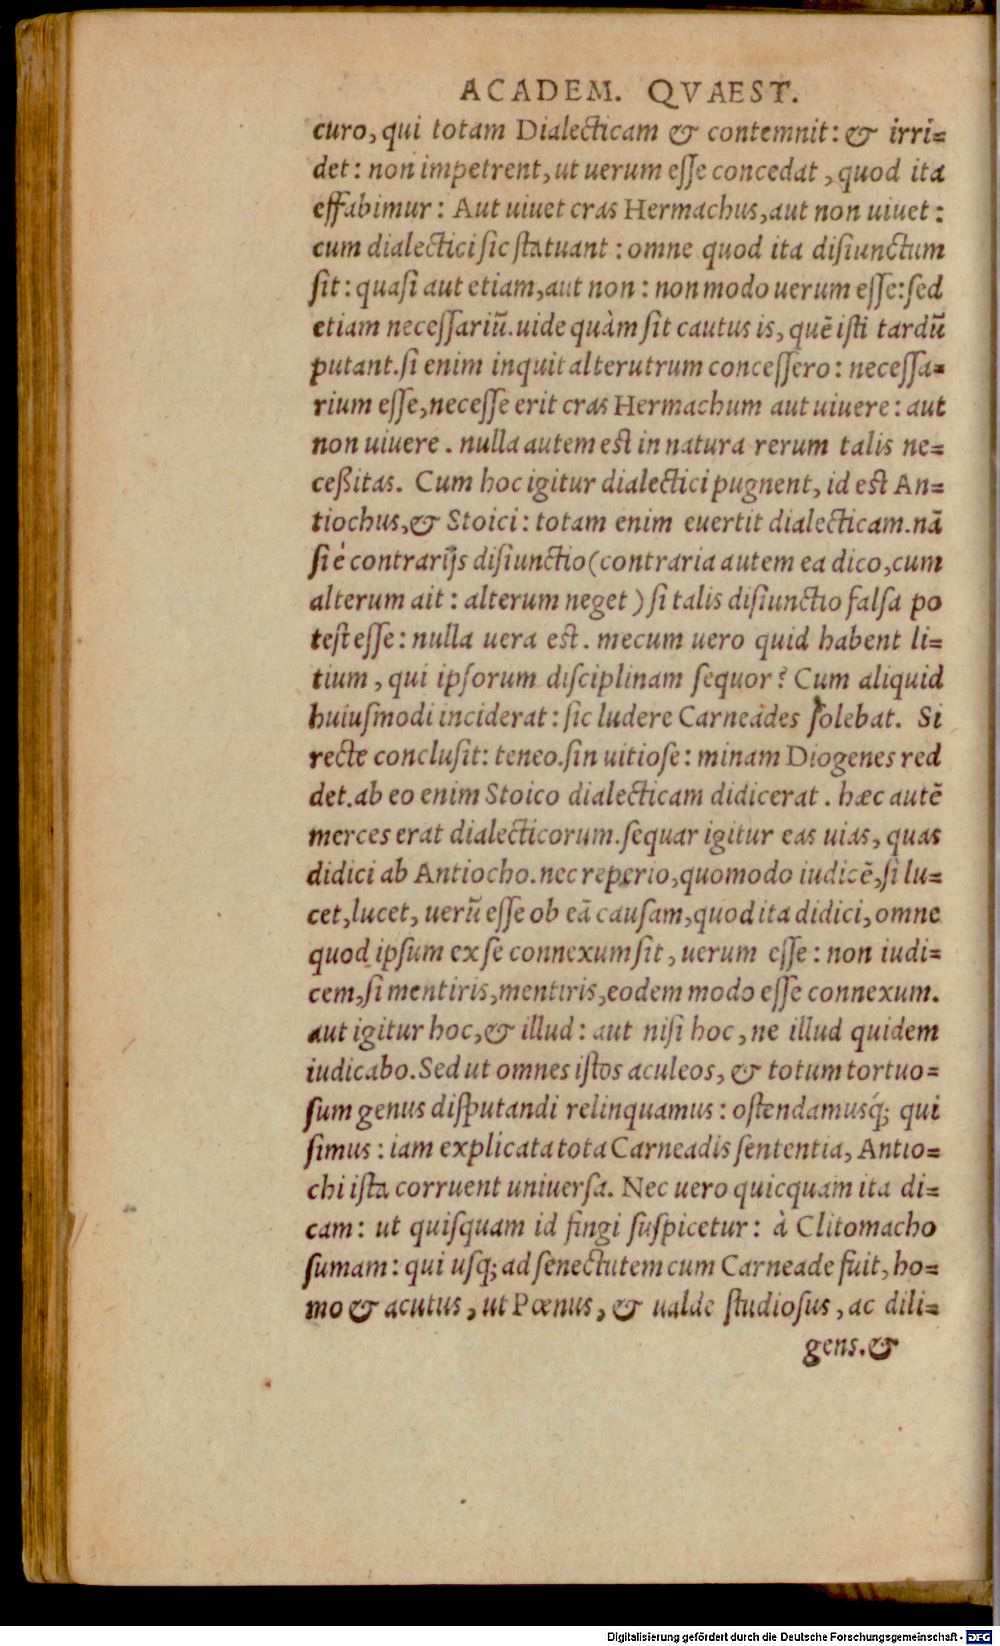 ACADEM. QVAEST.
curo, qui totam Dialecticam & contemnit: & irri=
det: non impetrent, ut uerum eſſe concedat, quod ita
effabimur: Aut uiuet cras Hermachus, aut non uiuet:
cum dialectici ſic ſtatuant: omne quod ita diſiunctum
ſit: quaſi aut etiam, aut non: non modo uerum eſſe: ſed
etiam neceſſariũ. uide quàm ſit cautus is, quẽ iſti tardũ
putant. ſi enim inquit alterutrum conceſſero: neceſſa=
rium eſſe, neceſſe erit cras Hermachum aut uiuere: aut
non uiuere. nulla autem eſt in natura rerum talis ne=
ceßitas. Cum hoc igitur dialectici pugnent, id eſt An=
tiochus, & Stoici: totam enim euertit dialecticam. nã
ſi è contrarijs diſiunctio (contraria autem ea dico, cum
alterum ait: alterum neget) ſi talis diſiunctio falſa po
teſt eſſe: nulla uera eſt. mecum uero quid habent li=
tium, qui ipſorum diſciplinam ſequor? Cum aliquid
huiuſmodi inciderat: ſic ludere Carneades ſolebat. Si
recte concluſit: teneo. ſin uitioſe: minam Diogenes red
det. ab eo enim Stoico dialecticam didicerat. hæc autẽ
merces erat dialecticorum. ſequar igitur eas uias, quas
didici ab Antiocho. nec reperio, quomodo iudicẽ, ſi lu=
cet, lucet, uerũ eſſe ob eã cauſam, quod ita didici, omne
quod ipſum ex ſe connexum ſit, uerum eſſe: non iudi=
cem, ſi mentiris, mentiris, eodem modo eſſe connexum.
aut igitur hoc, & illud: aut niſi hoc, ne illud quidem
iudicabo. Sed ut omnes iſtos aculeos, & totum tortuo=
ſum genus diſputandi relinquamus: oſtendamusq́; qui
ſimus: iam explicata tota Carneadis ſententia, Antio=
chi iſta corruent uniuerſa. Nec uero quicquam ita di=
cam: ut quiſquam id fingi ſuſpicetur: à Clitomacho
ſumam: qui uſq; ad ſenectutem cum Carneade fuit, ho=
mo & acutus, ut Pœnus, & ualde ſtudioſus, ac dili=
gens. &
Digitalisierung gefördert durch die Deutsche Forschungsgemeinschaft - DFG